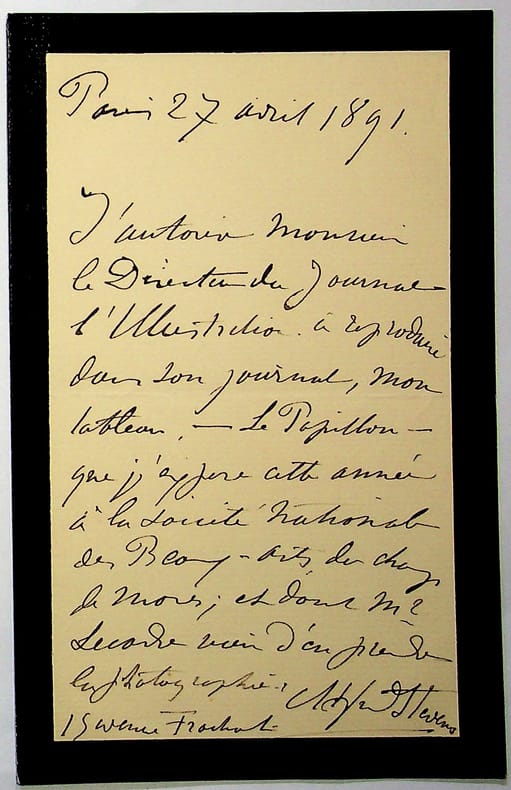 Paris 27 avril 1891.
J'autorise Monsieur
le Directeur du Journal
l'Illustration. à reproduire
dans son journal, mon
tableau, — Le Papillon —
que j'expose cette année
à la société National
des Beaux-arts, du champ
de Mars; et dont Mr
vient d'en prendre
la photographie.
Alfred Stevens
15 avenue Frochot